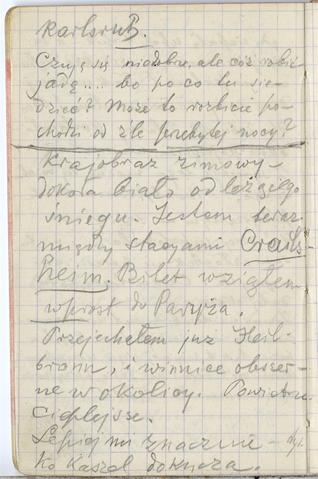 Karlsruh.
Czuję się niedobrze, ale cóż robić
jadę.... bo po co tu sie-
dzieć? Może to rozbicie po-
chodzi od źle przebytej nocy?
Krajobraz zimowy -
dokoła biało od leżącego
śniegu. Jestem teraz
między stacyami Crails-
heim. Bilet wziąłem
wprost do Paryża.
Przejechałem już Heil-
bronn, i winnice obszer-
ne w okolicy. Powietrze
cieplejsze.
Lepiej mi znacznie - tyl-
ko kaszel dokucza.